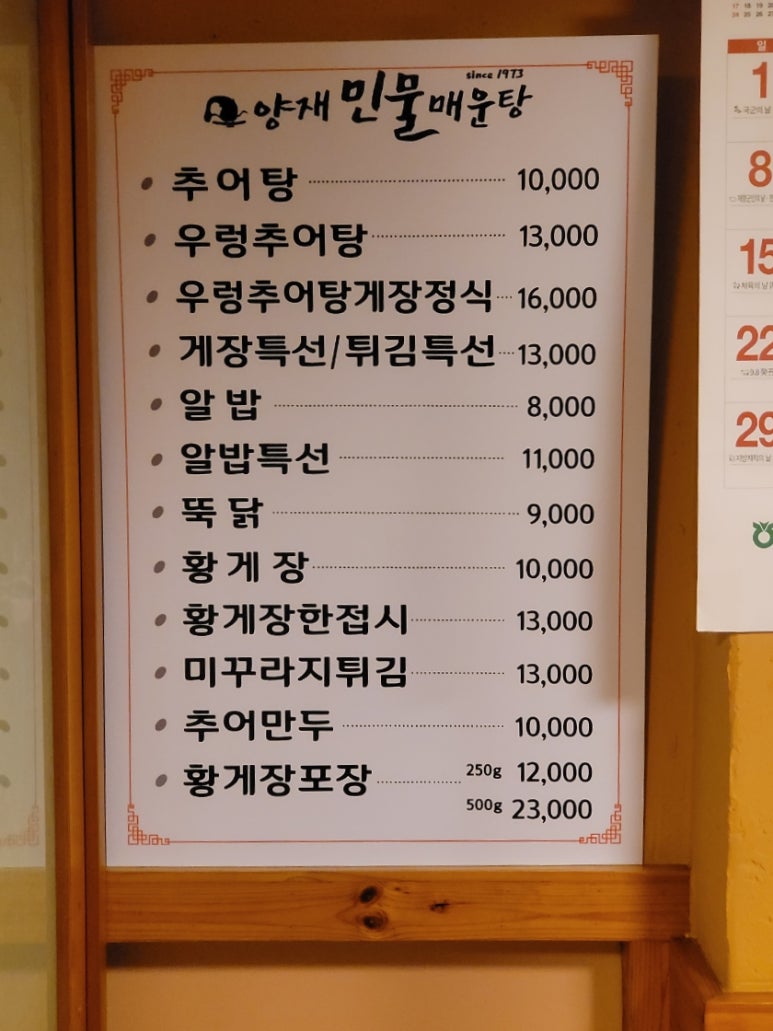 since 1973
양재 민물매운탕
추어탕 10,000
우렁추어탕 13,000
우렁추어탕게장정식 16,000
게장특선/튀김특선 13,000
알밥 8,000
알밥특선 11,000
뚝닭 9,000
황게장 10,000
황게장한접시 13,000
미꾸라지튀김 13,000
추어만두 10,000
황게장포장 250g 12,000
500g 23,000
17 18 19
24 25 26
일
1
국군의 날
8
15
체육의 날
22
29
지방자치의 날